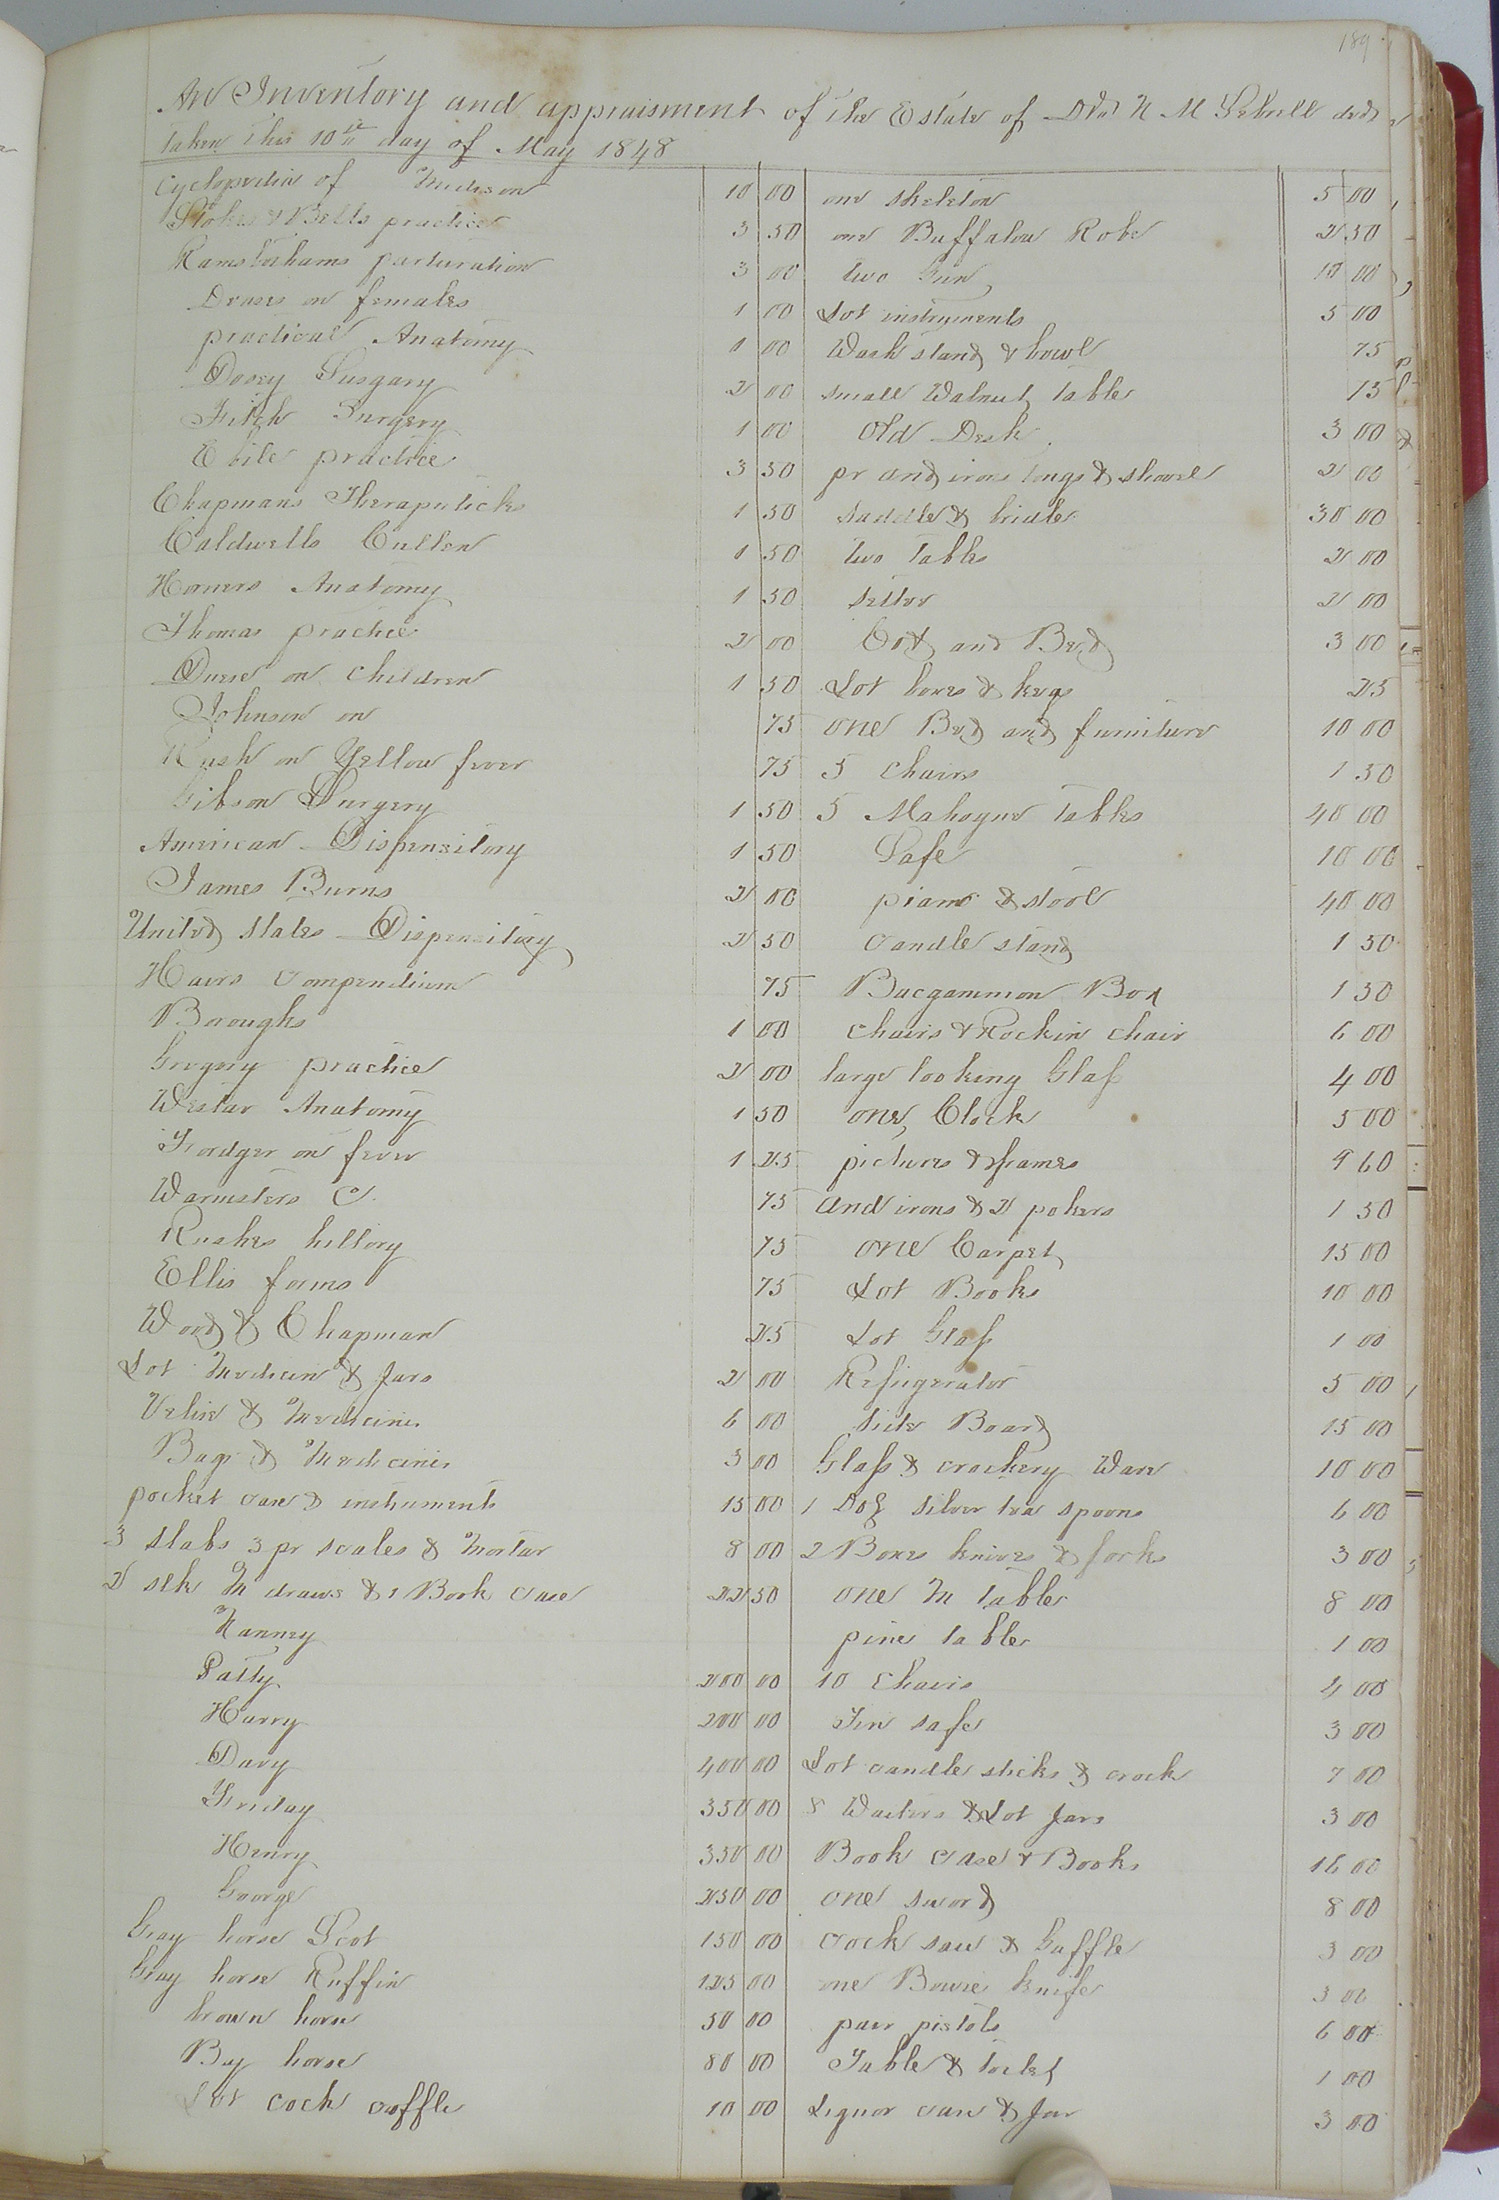 189
An Inventory and appraisment of the Estate of N M
taken this 10th day of May 1848
Cyclopedia of Medison 10 00
Stokes & Bells practice 3 50
Ramsbothams parturation 3 00
Dewees on females 1 00
practical Anatomy 1 00
Dosey Surgary 2 00
Fitch Surgery 1 00
Eberle practice 3 50
Chapmans Theraputicks 1 50
Caldwells Cullen 1 50
Horners Anatomy 1 50
Thomas practice 2 00
on children 1 50
Johnson on 75
Rush on Yellow fever 75
Gibson Surgery 1 50
American Dispensitory 1 50
James Burns 2 00
United States Dispensitory 2 50
compendium 75
Boroughs 1 00
Gregory practice 2 00
Westar Anatomy 1 50
on fever 1 25
75
Rushes hillory 75
Ellis forms 75
Word & Chapman 25
Lot Medicin & Jars 2 00
& Medicines 6 00
Bags & Medicines 3 00
pocket case & instruments 15 00
3 slabs 3 pr scales & Mortar 8 00
2 M draws & 1 Book case 22 50
Nanney
Patty 200 00
Harry 200 00
Davy 400 00
Friday 350 00
Henry 350 00
George 250 00
Gray horse Scot 150 00
Gray horse Ruffin 125 00
brown horse 50 00
Bay horse 80 00
Lot cock 10 00
one skeleton 5 00
one Buffalow Robe 2 50
two Gun 10 00
Lot instruments 5 00
Wash stand & bowl 75
small Walnut table 15
Old Desk 3 00
pr and irons tongs & shovel 2 00
saddle & bridle 30 00
two tables 2 00
2 00
Cot and Bed 3 00
Lot boxes & kegs 25
one Bed and furniture 10 00
5 chairs 1 50
5 Mahogne tables 40 00
Safe 10 00
piano & stool 40 00
candle stand 1 50
Bacgammon Box 1 50
chairs & Rockin chair 6 00
large looking Glass 4 00
one Clock 5 00
pictures & frames 9 60
and irons & 2 pokers 1 50
one Carpet 15 00
Lot Books 10 00
Lot Glass 1 00
Refrigerator 5 00
side Board 15 00
Glass & crockery Ware 10 00
1 Doz silver tea spoons 6 00
2 Boxes knives & forks 3 00
one M table 8 00
pine table 1 00
10 chairs 4 00
Tin safe 3 00
Lot candle sticks & crock 7 00
8 Waiters & Lot Jars 3 00
Book case & Books 16 00
one sword 8 00
cock saw & Gaffle 3 00
one Bowie knife 3 00
pair pistols 6 00
Table & 1 00
Liquor case & Jar 3 00